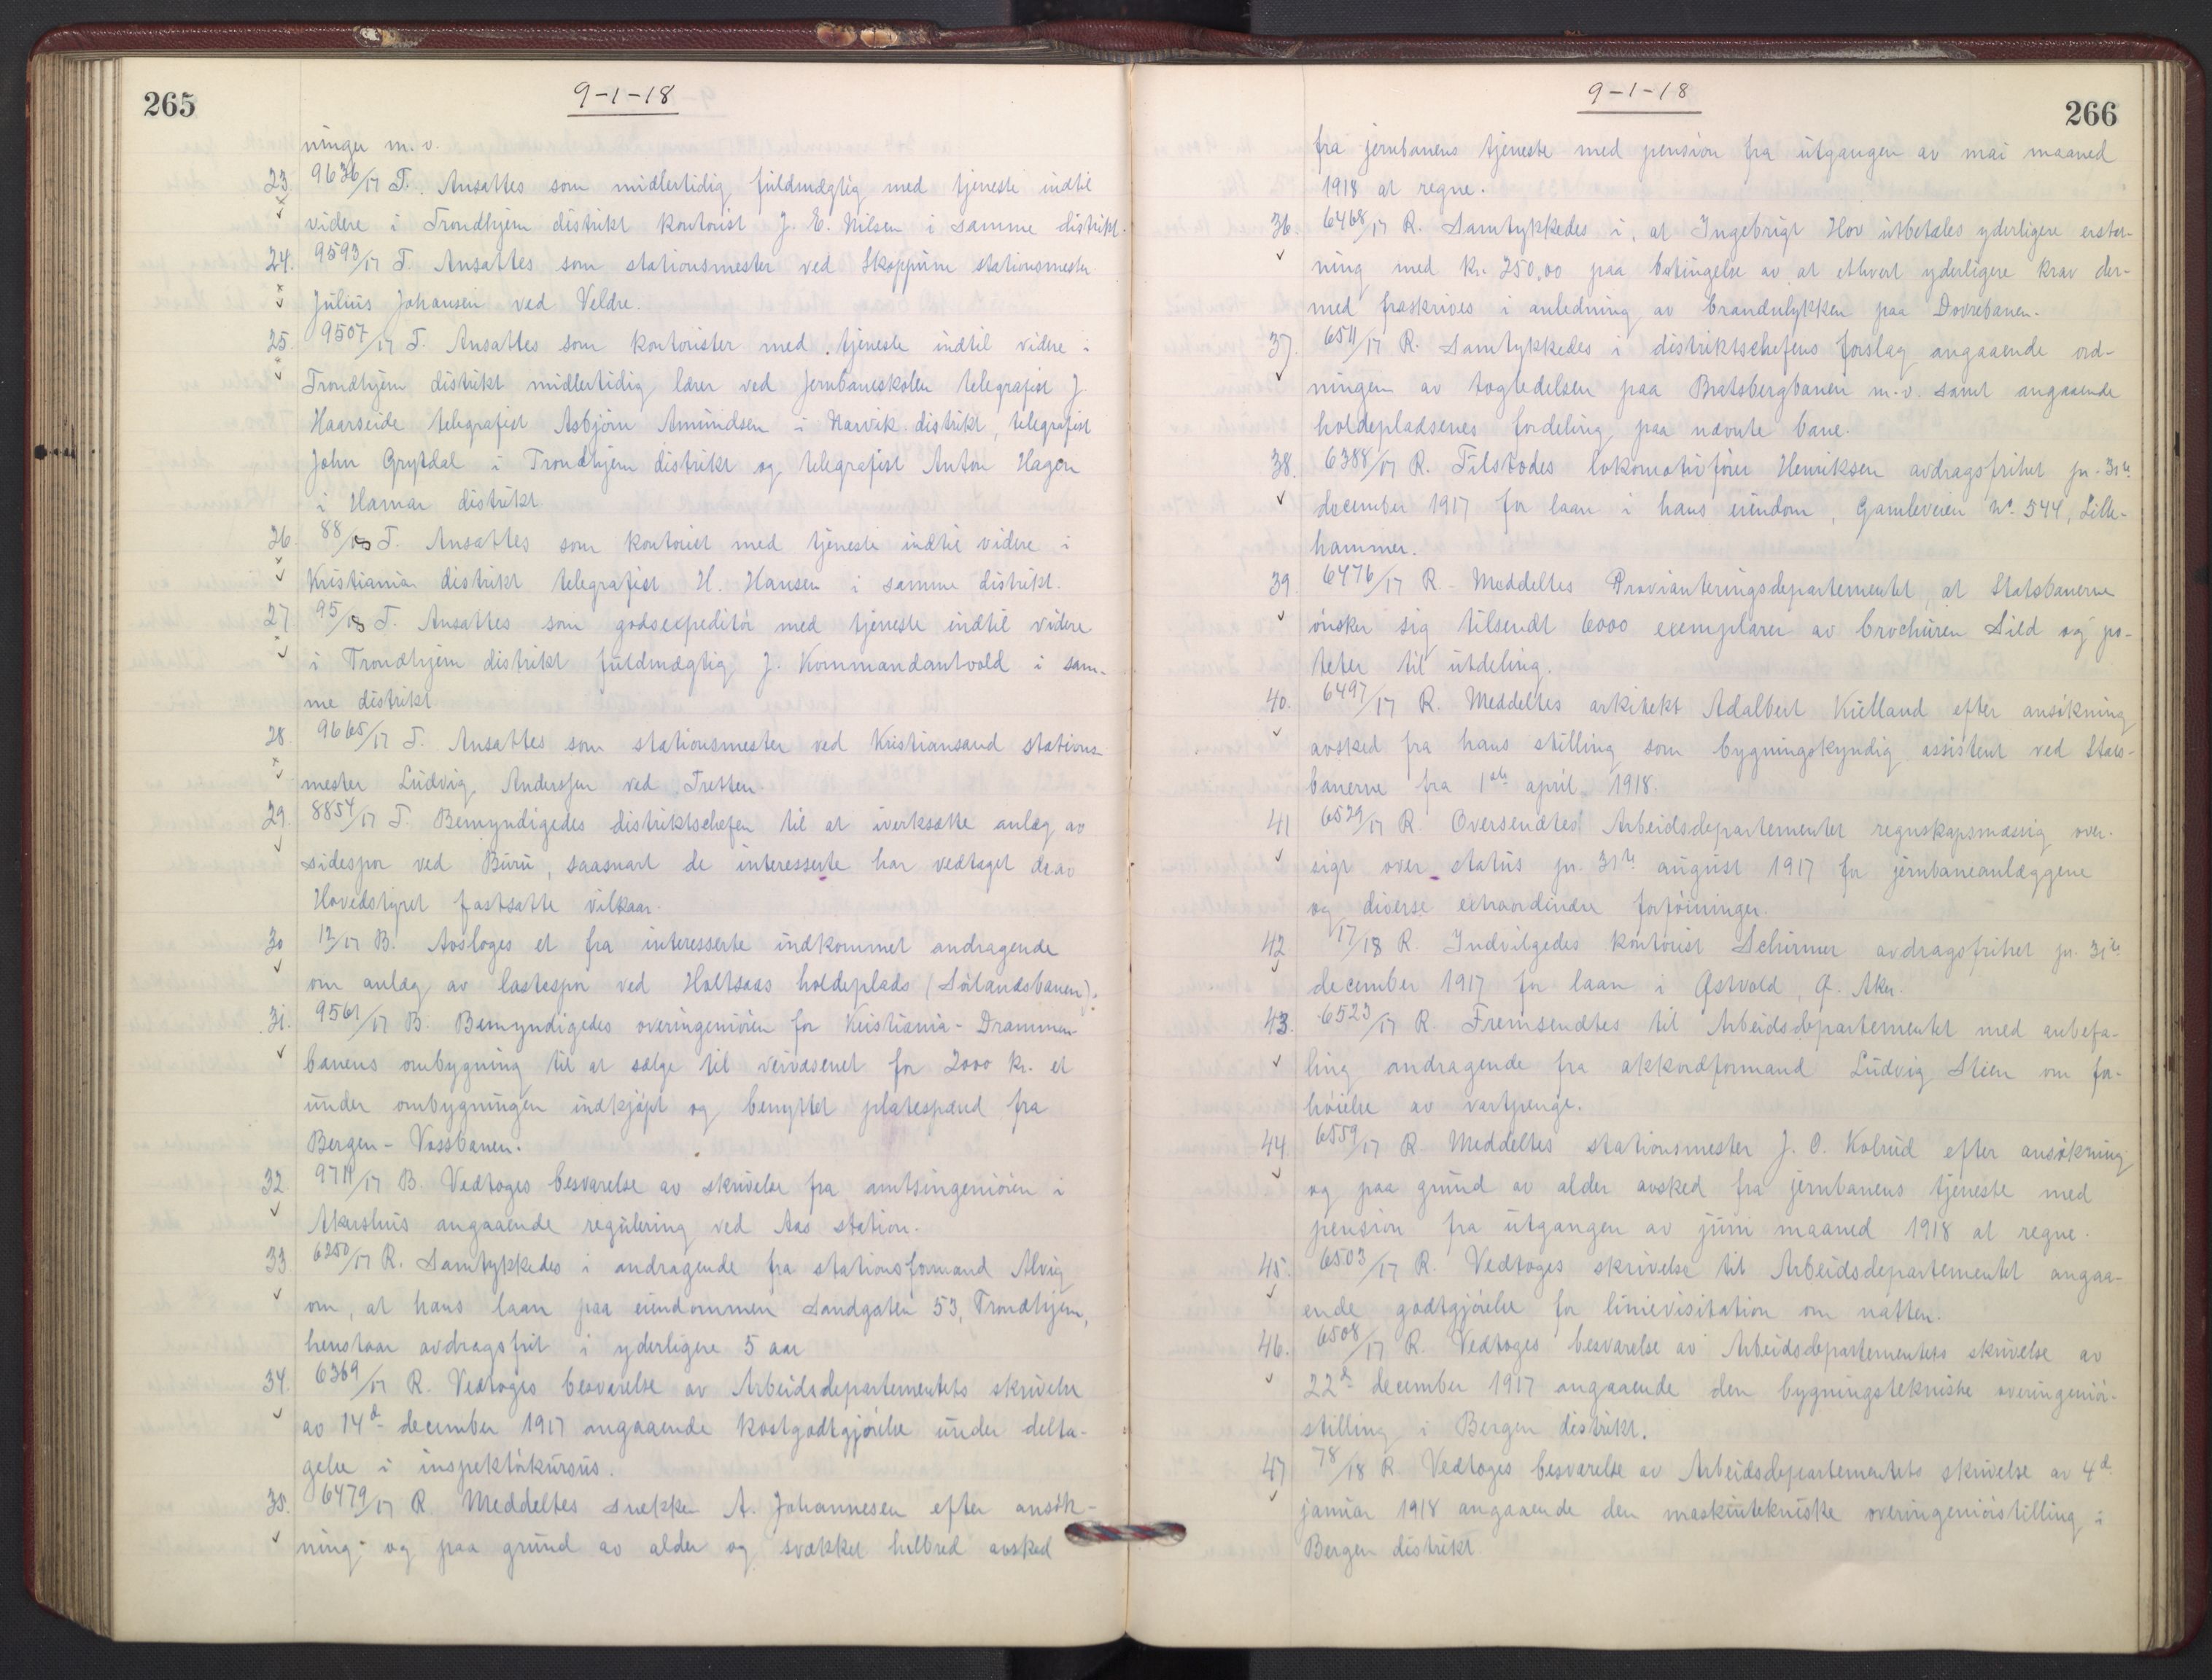 265
9-1-18
ninger m. v.
23. 9636/17 T. Ansattes som midlertidig fuldmægtig med tjeneste indtil
videre i Trondhjem distrikt kontorist J. E. Nilsen i samme distrikt.
24. 9593/17 T. Ansattes som stationsmester ved Skoppum stationsmester
Julius Johansen ved Veldre.
25. 9507/17 T. Ansattes som kontorister med tjeneste indtil videre i
Trondhjem distrikt midlertidig lærer ved Jernbaneskolen telegrafist J
Haarseide telegrafist Asbjörn Amundsen i Narvik distrikt, telegrafist
John Grytdal i Trondhjem distrikt og telegrafist Anton Hagen
i Hamar distrikt
26. 88/18 T. Ansattes som kontorist med tjeneste indtil videre i
Kristiania distrikt telegrafist H. Hansen i samme distrikt.
27 95/18 T. Ansattes som godsexpeditör med tjeneste indtil videre
i Trondhjem distrikt fuldmægtig J. Kommandantvold i sam-
me distrikt
28. 9665/17 T. Ansattes som stationsmester ved Kristiansand stations-
mester Ludvig Anderssen ved Tretten.
29. 8854/17 T. Bemyndigedes distriktschefen til at iverksætte anlæg av
sidespor ved Buru, saasnart de interesserte har vedtaget de av
Hovedstyret fastsatte vilkaar.
30 12/17 B. Avsloges et fra interesserte indkommet andragende
om anlæg av lastespor ved Holtsaas holdeplads (Sörlandsbanen).
31. 9561/17 B. Bemyndigedes overingeniören for Kristiania-Drammen-
banens ombygning til at sælge til veivæsenet for 2000 kr. et
under ombygningen indkjöpt og benyttet platespænd fra
Bergen-Vossbanen.
32 9711/17 B. Vedtoges besvarelse av skrivelse fra amtsingeniören i
Akershus angaaende regulering ved Aas station.
33 6250/17 R. Samtykkedes i andragende fra stationsformand Alvig
om, at hans laan paa eiendommen Sandgaten 53, Trondhjem,
henstaar avdragsfrit i yderligere 5 aar
34. 6369/17 R. Vedtoges besvarelse av Arbeidsdepartementets skrivelse
av 14d december 1917 angaaende kostgodtgjörelse under delta-
gelse i inspektörkursus.
35. 6479/17 R. Meddeltes snekker A. Johannesen efter ansök-
ning og paa grund av alder og svækket helbred avsked
266
9-1-18
fra jernbanens tjeneste med pension fra utgangen av mai maaned
1918 at regne.
36. 6468/17 R. Samtykkedes i, at Ingebrigt Hov utbetales yderligere erstat-
ning med kr. 250,00 paa betingelse av at ethvert yderligere krav der-
med fraskrives i anledning av brandulykken paa Dovrebanen.
37. 6511/17 R. Samtykkedes i distriktschefens forslag angaaende ord-
ningen av togledelsen paa Bratsbergbanen m.v. samt angaaende
holdepladsenes fordeling paa nævnte bane.
38. 6388/17 R. Tilstodes lokomotivförer Henriksen avdragsfrihet pr. 31te
december 1917 for laan i hans eiendom, Gamleveien No. 544, Lille-
hammer.
39. 6476/17 R. Meddeltes Provianteringsdepartementet, at Statsbanerne
önsker sig tilsendt 6000 exemplarer av brochuren Sild og po-
teter til utdeling.
40. 6497/17 R. Meddeltes arkitekt Adalbert Kielland efter ansökning
avsked fra hans stilling som bygningskyndig assistent ved Stats-
banerne fra 1ste april 1918.
41 6529/17 R. Oversendtes Arbeidsdepartementet regnskapsmæssig over-
sigt over status pr. 31te august 1917 for jernbaneanlæggene
og diverse extraordinære forföininger.
42 17/18 R. Indvilgedes kontorist Schirmer avdragsfrihet pr. 31te
december 1917 for laan i Østvold, Ö. Aker.
43. 6523/17 R. Fremsendtes til Arbeidsdepartementet med anbefa-
ling andragende fra akkordformand Ludvig Steen om for-
höielse av vartpenge.
44 6559/17 R. Meddeltes stationsmester J. O. Kolrud efter ansökning
og paa grund av alder avsked fra jernbanens tjeneste med
pension fra utgangen av juni maaned 1918 at regne.
45. 6503/17 R. Vedtoges skrivelse til Arbeidsdepartementet angaa-
ende godtgjörelse for linievisitation om natten.
46. 6508/17 R. Vedtoges besvarelse av Arbeidsdepartementets skrivelse av
22d december 1917 angaaende den bygningstekniske overingeniör-
stilling i Bergen distrikt.
47 78/18 R. Vedtoges besvarelse av Arbeidsdepartementets skrivelse av 4d
januar 1918 angaaende den maskintekniske overingeniörstilling i
Bergen distrikt